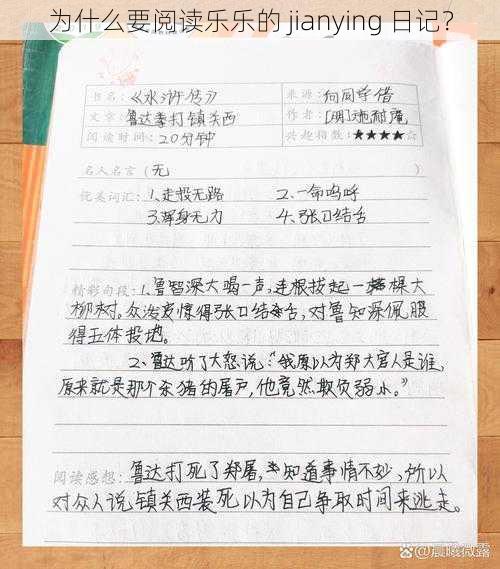 为什么要阅读乐乐的 jianying 日记？
书名：《水浒传》 来源：向同学借
文章：鲁达拳打镇关西 作者：[明]施耐庵
阅读时间：20分钟 兴趣指数：★★★★☆
名人名言（无 ）
优美词汇：1、走投无路 2、一命呜呼
3、浑身无力 4、张口结舌
精彩句段：1、鲁智深大喝一声，连根拔起一棵大
柳树。众泼皮惊得张口结舌，对鲁知深佩服
得五体投地。
2、鲁达听了大怒说：“我原以为郑大官人是谁，
原来就是那个杀猪的屠户，他竟然欺负弱小。”
阅读感想：鲁达打死了郑屠，知道事情不妙，所以
对众人说镇关西装死以为自己争取时间来逃走。
@晨曦微露